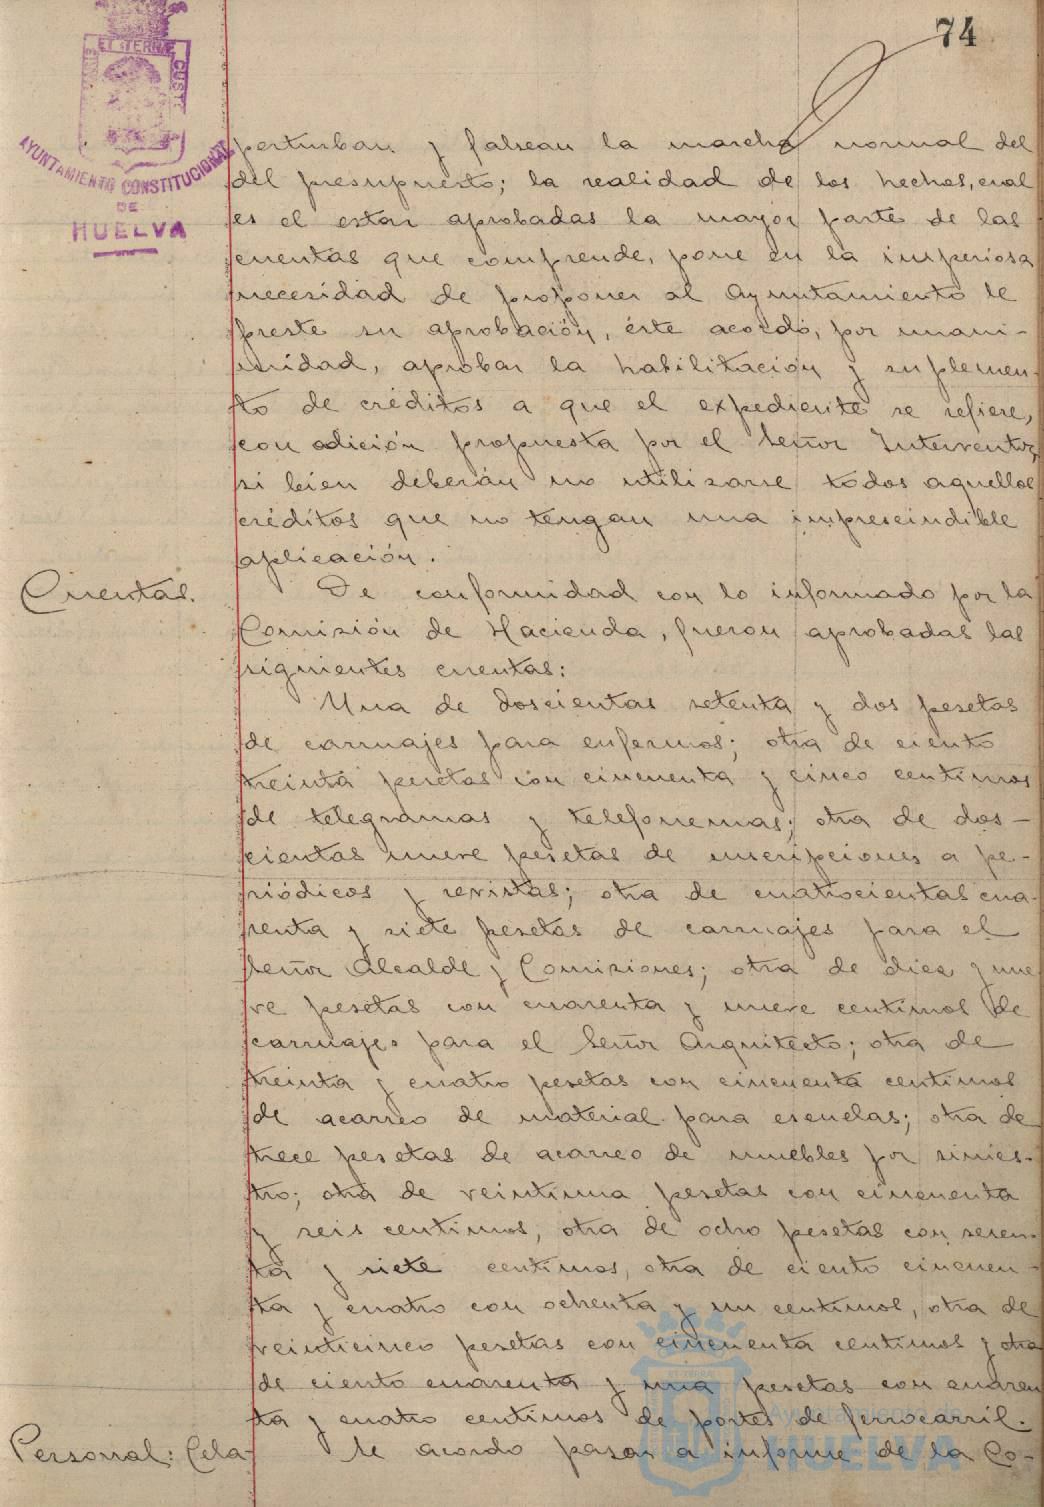 74
PORTUS ET TERRAE CUSTODIA
AYUNTAMIENTO CONSTITUCIONAL
DE
HUELVA
perturban y falsean la marcha normal del
del presupuesto; la realidad de los hechos, cual
es el estar aprobadas la mayor parte de las
cuentas que comprende, pone en la imperiosa
necesidad de proponer al Ayuntamiento le
preste su aprobación, éste acordó, por unani-
midad, aprobar la habilitación y suplemen-
to de créditos a que el expediente se refiere,
con adición propuesta por el Señor Interventor,
si bien deberán no utilizarse todos aquellos
créditos que no tengan una imprescindible
aplicación.
Cuentas.
De conformidad con lo informado por la
Comisión de Hacienda, fueron aprobadas las
siguientes cuentas:
Una de doscientas setenta y dos pesetas
de carruajes para enfermos; otra de ciento
treinta pesetas con cincuenta y cinco centimos
de telegramas y telefonemas; otra de dos-
cientas nueve pesetas de suscripciones a pe-
riódicos y revistas; otra de cuatrocientas cua-
renta y siete pesetas de carruajes para el
Señor Alcalde y Comisiones; otra de diez y nue
ve pesetas con cuarenta y nueve centimos de
carruajes para el Señor Arquitecto; otra de
treinta y cuatro pesetas con cincuenta centimos
de acarreo de material para escuelas; otra de
trece pesetas de acarreo de muebles por sinies-
tro; otra de veintiuna pesetas con cincuenta
y seis centimos, otra de ocho pesetas con sesen-
ta y siete centimos, otra de ciento cincuen-
ta y cuatro con ochenta y un centimos, otra de
veinticinco pesetas con cincuenta centimos y otra
de ciento cuarenta y una pesetas con cuaren
ta y cuatro centimos de portes de ferrocarril.
Personal: Cela-
Se acordo pasar a informe de la Co-
Ayuntamiento de
HUELVA